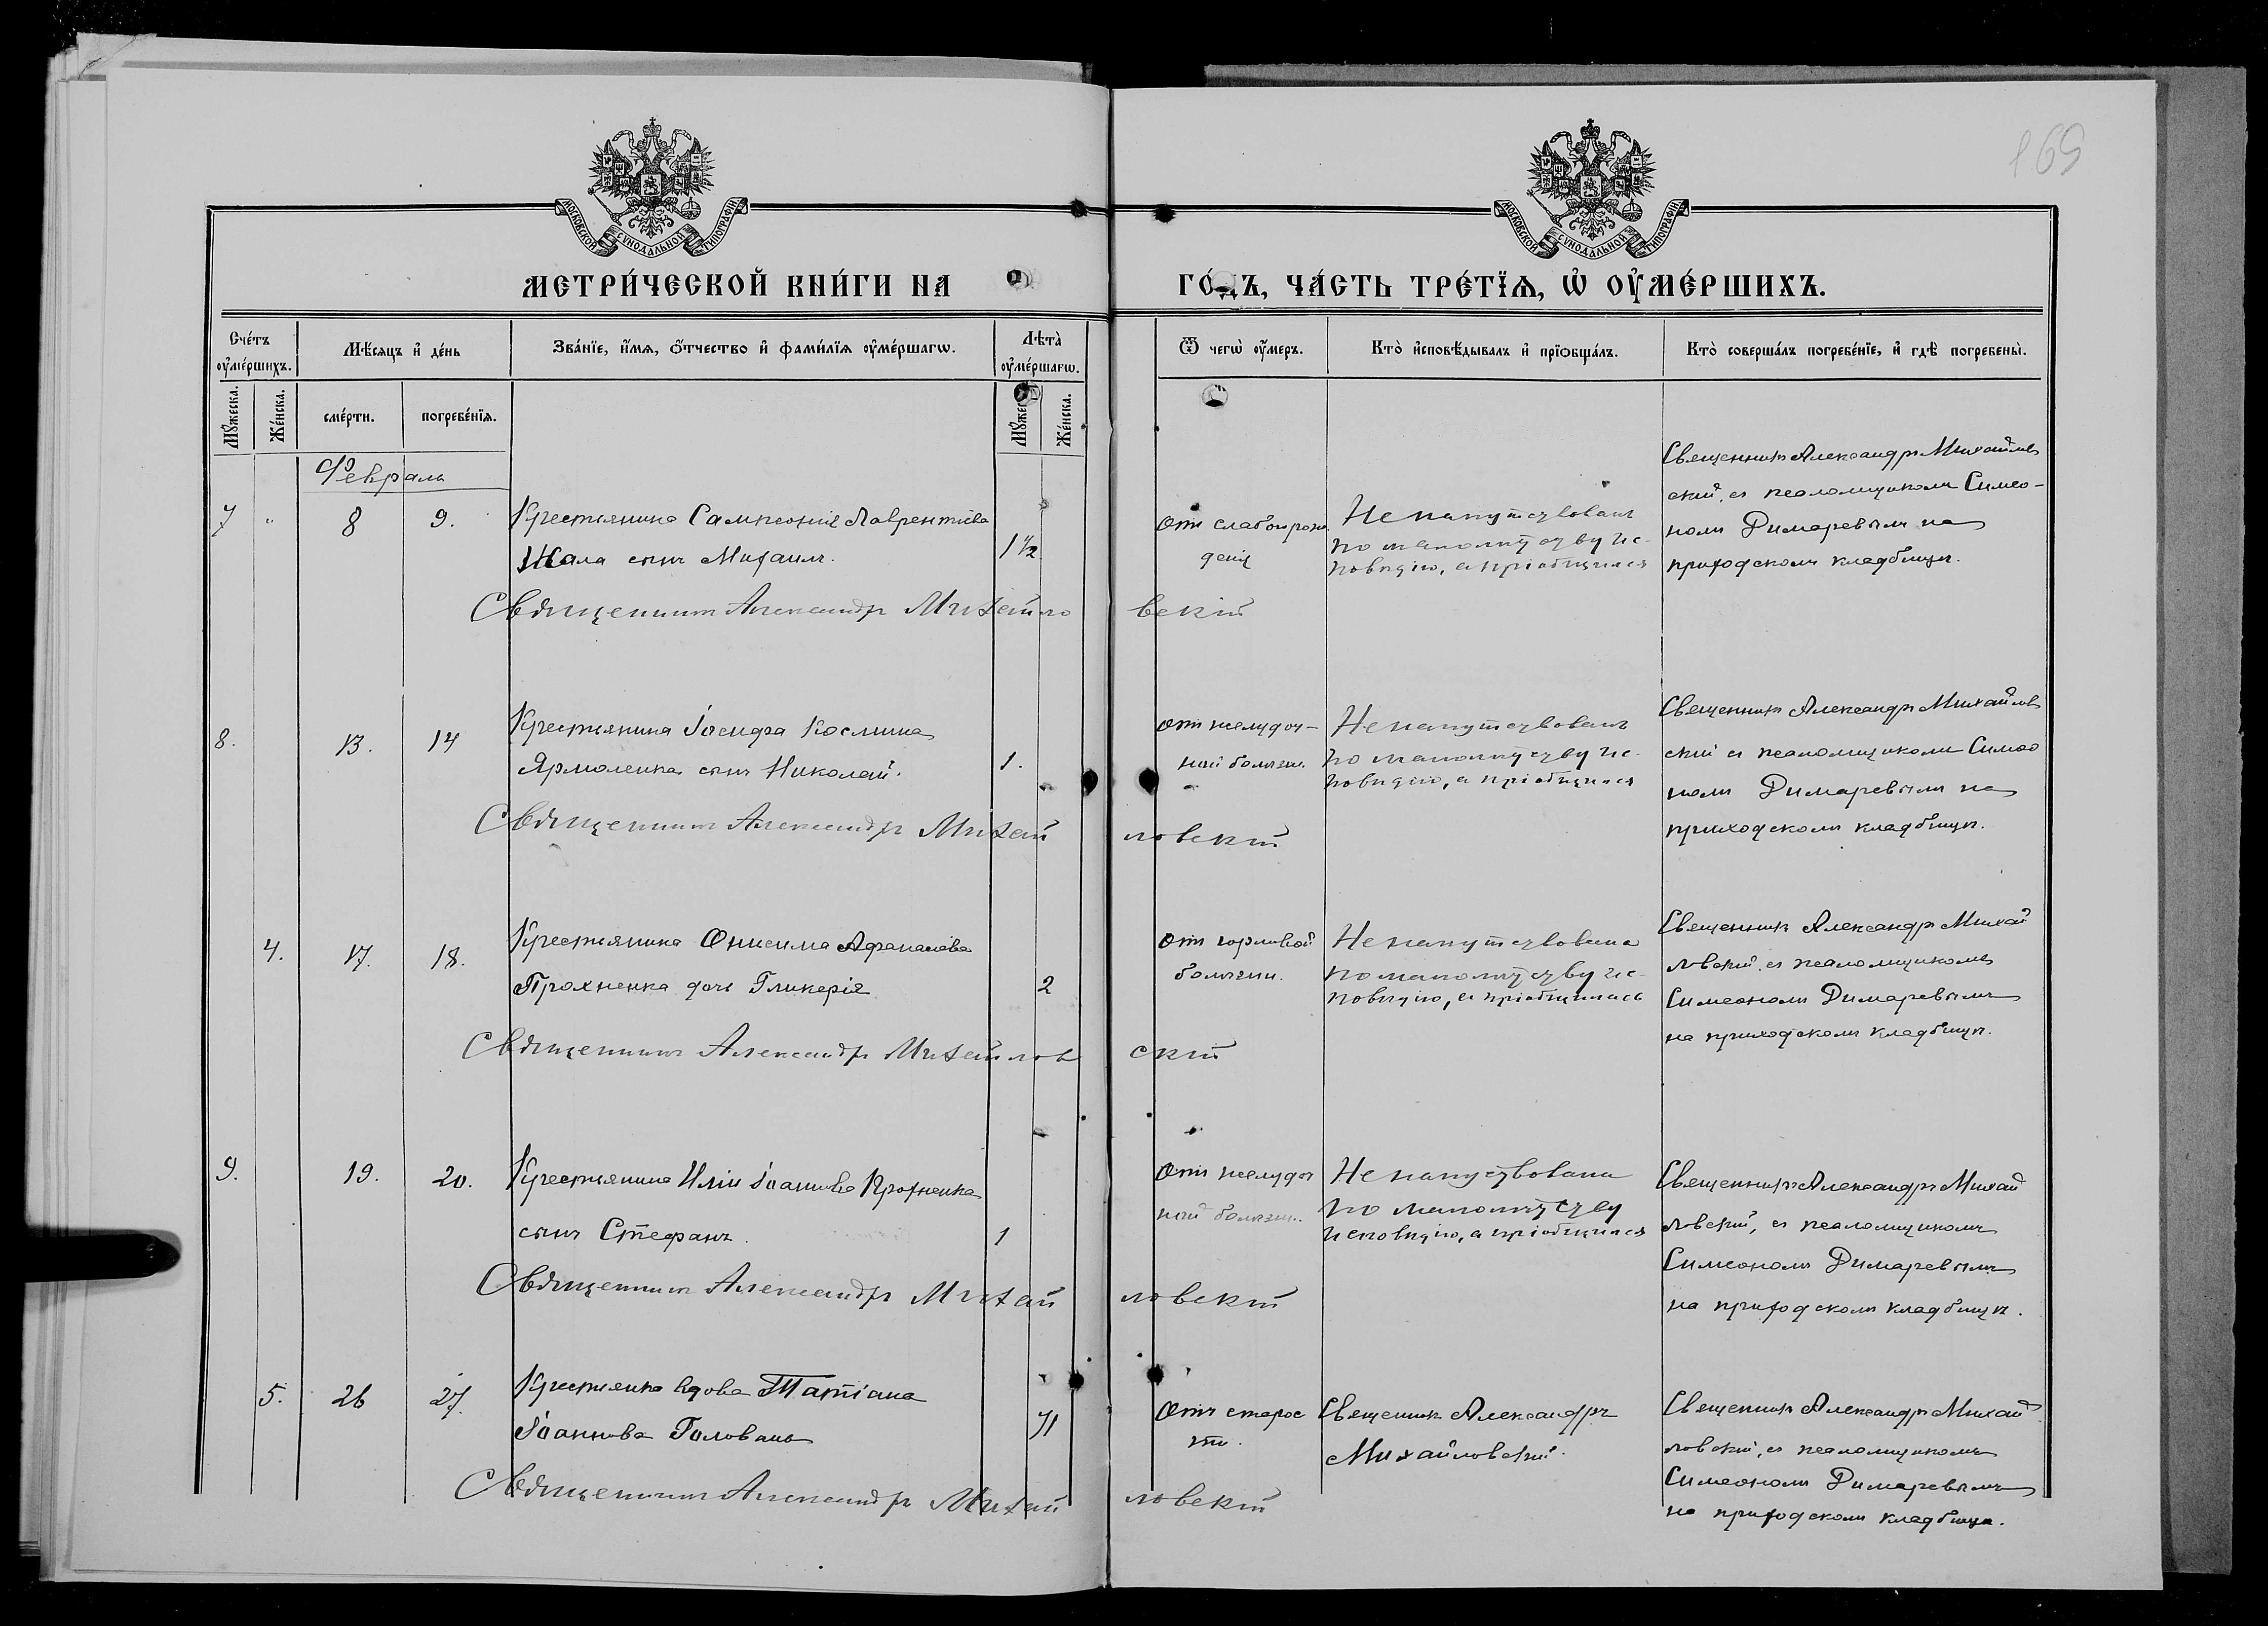 169
МОСКОВСКОЙ СУНОДАЛЬНОЙ ТИПОГРАФІИ
МОСКОВСКОЙ СУНОДАЛЬНОЙ ТИПОГРАФІИ
МЕТРИ́ЧЕСКОЙ КНИ́ГИ НА
ГО́ДЪ, ЧА́СТЬ ТРЕ́ТЇѦ, Ѽ ОУ҆МЕ́РШИХЪ.
Сче́тъ оу҆ме́ршихъ.
Мѣ́сяцъ и҆ де́нь
Зва́нїе, и҆́мѧ, ѻ҆́тчество и҆ фами́лїѧ оу҆ме́ршагѡ.
Лѣ́та̀ оу҆ме́ршагѡ.
Ѿ чегѡ̀ оу҆́меръ.
Кто̀ и҆сповѣ́дывалъ и҆ прїѻбща́лъ.
Кто̀ соверша́лъ погребе́нїе, и҆ гдѣ̀ погребены̀.
Мꙋ́жеска.
Же́нска.
сме́рти.
погребе́нїѧ.
Мꙋ́жес
Же́нска.
Февраль
7 " 8 9.
Крестьянина Сампсонія Лаврентіева
Жала сынъ Михаилъ.
1½
Отъ слаборож
денія
Ненапутствованъ
по малолѣтству ис-
повѣдію, а пріобщился
Священникъ Александръ Михайлов
скій, съ псаломщикомъ Симео-
номъ Димаревымъ на
приходскомъ кладбищѣ.
Священникъ Александръ Михайловскій
8. 13. 14
Крестьянина Іосифа Космина
Ярмоленка сынъ Николай.
1.
Отъ желудоч-
ной болѣзни
Ненапутствованъ
по малолѣтству ис-
повѣдію, а пріобщился
Священникъ Александръ Михайлов
скій съ псаломщикомъ Симео
номъ Димаревымъ на
приходскомъ кладбищѣ.
Священникъ Александръ Михайловскій
4. 17. 18.
Крестьянина Онисима Афанасіева
Прохненка дочь Гликерія
2
Отъ горловой
болѣзни.
Ненапутствована
по малолѣтству ис-
повѣдію, а пріобщилась
Священникъ Александръ Михай
ловскій, съ псаломщикомъ
Симеономъ Димаревымъ
на приходскомъ кладбищѣ.
Священникъ Александръ Михайловскій
9. 19. 20.
Крестьянина Иліи Іоаннова Прохненка
сынъ Стефанъ.
1
Отъ желудоч
ной болѣзни.
Ненапутствована
по малолѣтству
исповѣдію, а пріобщился
Священникъ Александръ Михай
ловскій, съ псаломщикомъ
Симеономъ Димаревымъ
на приходскомъ кладбищѣ.
Священникъ Александръ Михайловскій
5. 26 27.
Крестьянка вдова Татіана
Іоаннова Головань
71
Отъ старос
ти.
Священникъ Александръ
Михайловскій.
Священникъ Александръ Михай
ловскій, съ псаломщикомъ
Симеономъ Димаревымъ
на приходскомъ кладбищѣ.
Священникъ Александръ Михайловскій